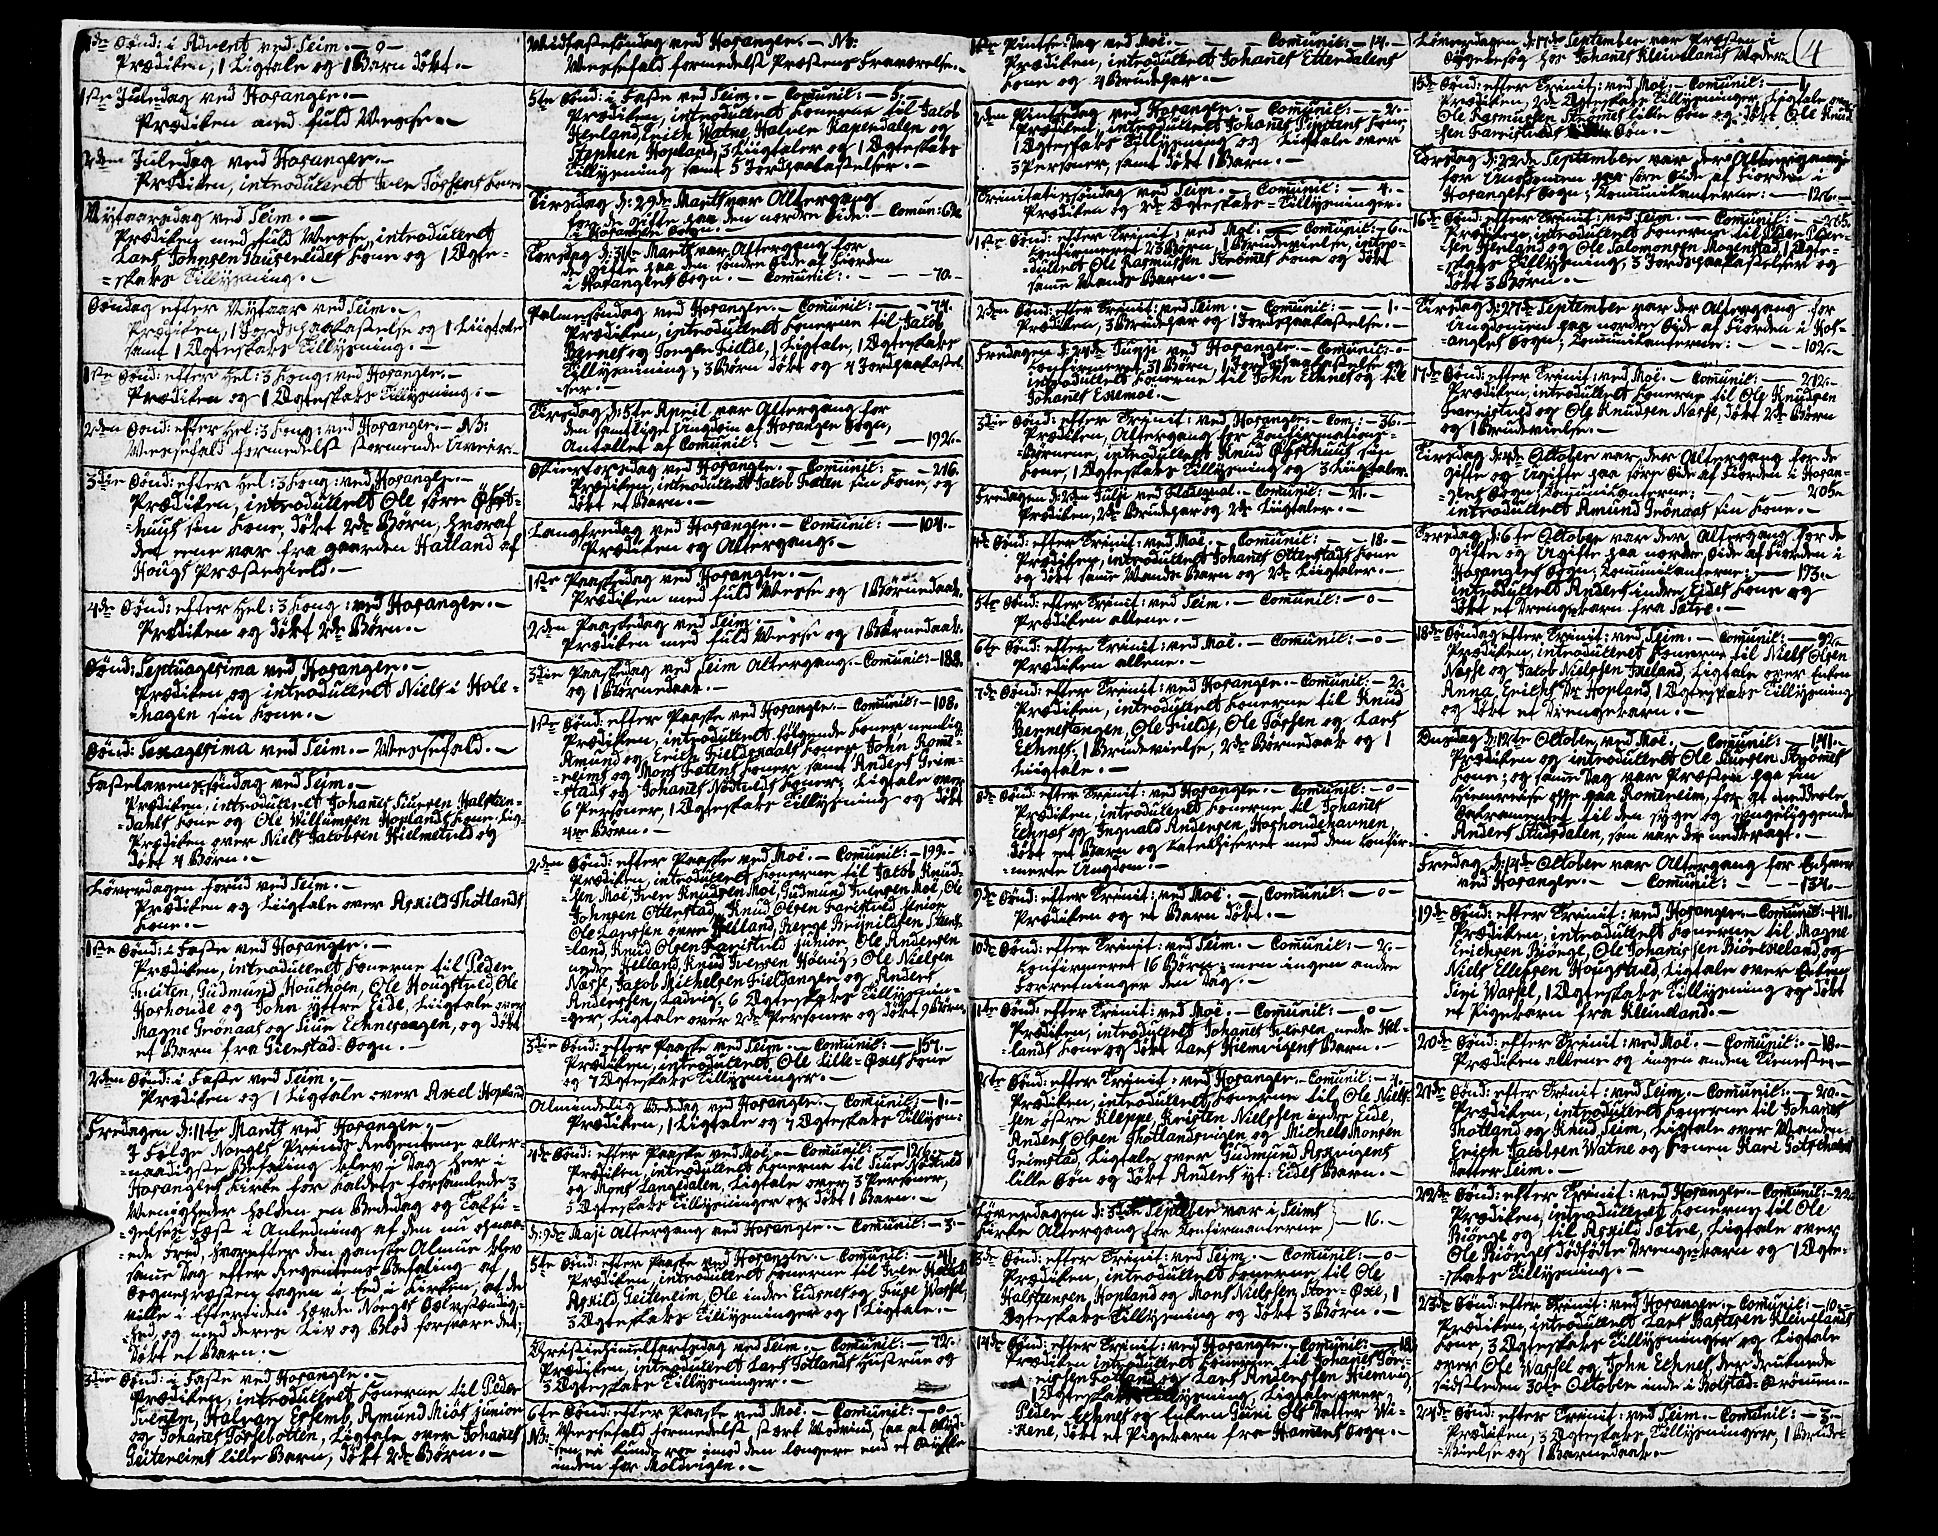 4de Sønd: i Advent ved Seim. — o —
Prædiken, 1 Ligtale og 1 Barn døbt. —
1ste Juledag ved Hosanger. —
Prædiken med fuld Messe. —
2den Juledag ved Hosanger. —
Prædiken, introduceret Iver Tøssens Kone
Nytaarsdag ved Seim. —
Prædiken med fuld Messe, introduceret
Lars Johnsen Kone og 1 Ægte-
=skabs Tillysning. —
Søndag efter Nytaar ved Seim. —
Prædiken, 1 Jordspaakastelse og 1 Liigtale
samt 1 Ægteskabs Tillysning. —
1ste Sønd: efter Hel: 3 Kong: ved Hosanger. —
Prædiken og 1 Ægteskabs Tillysning. —
2den Sønd: efter Hel: 3 Kong: ved Hosanger. — NB:
Messefald formedelst stormende Uveir. —
3die Sønd: efter Hel: 3 Kong: ved Hosanger. —
Prædiken, introduceret Ole søre
sin Kone, døbt 2de Børn, hvoraf
det eene var fra gaarden Hatland af
Hougs Præstegield. —
4de Sønd: efter Hel: 3 Kong: ved Hosanger. —
Prædiken og døbt 2de Børn. —
Sønd: Septuagesima ved Hosanger. —
Prædiken og introduceret Niels i Hole-
=hagen sin Kone. —
Sønd: Sexagesima ved Seim. — Messefald. —
Fastelavenssøndag ved Seim. —
Prædiken, introduceret Johanes Siursen Halsten-
=dahls Kone og Ole Willumsen Hoplands Kone. Lig-
Prædiken over Niels Jacobsen Hielmetvld og
døbt 4 Børn. —
Løverdagen forud ved Seim. —
Prædiken og Liigtale over Askild Thotlands
Kone. —
1ste Sønd: i Faste ved Hosanger. —
Prædiken, introduceret Konerne til Peder
Tveiten, Gudmund Houthoen, Ole Hougstvld, Ole
Hoshoude og John yttre Eide, Liigtale over
Magne Grønaas og Siur Echnesaagen, og døbt
et Barn fra Sogn. —
2den Sønd: i Faste ved Seim. —
Prædiken og 1 Ligtale over Axel Hopland
Fredagen d: 11te Marts ved Hosanger. —
I Følge Norges Prinds Regentens aller-
=naadigste Befaling blev i Dag her i
Hosangers Kirke for Kaldets forsamlede 3
Menigheder holden en Bededag og Taksi-
=gelses Fest i Anledning af den nu opnaa-
=ede Fred, hvorefter den ganske Almue blev
same Dag efter Regentens Befaling af
Sognepræsten tagen i Eed i Kirken, at de
ville i Eftertiden hævde Norges Selvstændig-
=hed, og med deres Liv og Blod forsvare det;
Døbt et Barn. —
3die Sønd: i Faste ved Hosanger. —
Prædiken, introduceret Konerne til Peder
Tveiten, Halvor Amund Miøs junior
og Johanes Liigtale over Johanes
Geitereims lille Barn, døbt 2de Børn. —
Midfastesøndag ved Hosanger. — NB:
Messefald formedelst Præstens Fraværelse. —
5te Sønd: i Faste ved Seim. — Comunic: — 5. —
Prædiken, introduceret Konerne til Jacob
Henland, Erich Watne, Halvor Ravendalen og
Stephen Hopland, 3 Liigtaler og 1 Ægteskabs
Tillysning samt 5 Jordspaakastelser. —
Tirsdag d: 29de Marts var Altergang
for de Gifte paa den nordre Side — Comun: 62.
i Hosangers Sogn. —
Torsdag d: 31te Marts var Altergang for
de Gifte paa den søndre Side af Fiorden
i Hosangers Sogn. — Comunic: — — 70. —
Palmesøndag ved Hosanger. — Comunic: — 74.
Prædiken, introduceret Konerne til Jacob
Bernes og Fielde, 1 Liigtale, 1 Ægteskabs
Tillysning, 3 Børn døbt og 4 Jordspaakastel-
=ser. —
Tirsdag d: 5te April var Altergang for
den samtlige Ungdom af Hosanger Sogn,
Antallet af Comunic: — — 192. —
Skiertorsdag ved Hosanger. — Comunic: — 216. —
Prædiken, introduceret Jacob sin Kone, og
døbt et Barn. —
Langfredag ved Hosanger. — Comunic: — 104. —
Prædiken og Altergang. —
1ste Paaskedag ved Hosanger. —
Prædiken med fuld Messe og 1 Børnedaab.
2den Paaskedag ved Seim. —
Prædiken med fuld Messe og 1 Børnedaab.
3die Paaskedag ved Seim Altergang. — Comunic: — 188.
og 1 Børnedaab. —
1ste Sønd: efter Paaske ved Hosanger. — Comunic: — 108.
Prædiken, introduceret følgende Koner, nemlig
Amund og Erich Fieldskaals Koner John Rome-
=reims og Mons Koner samt Anders Grim-
=stads og Johanes Nødtvlds Koner; Ligtale over
6 Personer, 1 Ægteskabs Tillysning og døbt
4de Børn. —
2den Sønd: efter Paaske ved Moe. — Comunic: — 199. —
Prædiken, introduceret Konerne til Jacob Knud-
sen Moe, Iver Knudsen Moe, Gudmund Iversen Moe, Ole
Johnsen Otterstad, Knud Olsen Farestvld senior
Ole Larssen øvre Helland, Børge Brynildsen
=land, Knud Olsen Farestvld junior, Ole Andersen
nedre Helland, Knud Iversen Høevig, Ole Nielsen
Nasse, Jacob Michelsen Fieldanger og Anders
Anderssen, Ladvig; 6 Ægteskabs Tillysnin-
=ger, Liigtale over 2de Personer og døbt 9 Børn.
3die Sønd: efter Paaske ved Seim. — Comunic: — 157. —
Prædiken, introduceret, Ole Lille-Øxes Kone
og 7 Ægteskabs Tillysninger. —
Almindelig Bededag ved Hosanger. — Comunic: — 1. —
Prædiken, 1 Liigtale og 7 Ægteskabs Tillysn:
4de Sønd: efter Paaske ved Moe. — Comunic: — 126. —
Prædiken, introduceret Konerne til Siur Nødtvld
og Mons Langedalen, Ligtale over 3 Personer,
5 Ægteskabs Tillysninger og døbt 1 Barn. —
d: 9de Maji Altergang ved Hosanger. — Comunic: — 3. —
5te Sønd: efter Paaske ved Hosanger. — Comunic: — 41. —
Prædiken, introduceret Konerne til Iver
Askild Geitereim, Ole indre Eidsnes og Wassel,
3 Ægteskabs Tillysninger og 1 Ligtale. —
Christihimmelfartsdag ved Seim. — Comunic: — 72. —
Prædiken, introduceret Lars Totlands Hustrue og
3 Ægteskabs Tillysninger. —
6te Sønd: efter Paaske ved Moe. — Comunic: — o —
NB: Messefald formedelst stærk Modvind, saa at Skyds-
=sen ei kunde roe imod den længere end et Stykke
inden for Moldvigen. —
1ste Pintse Dag ved Moe. — Comunic: — 14. —
Prædiken, introduceret Johanes Ellendalens
Kone og 4 Brudepar. —
2den Pintsedag ved Hosanger. — Comunic: — 2. —
Prædiken, introduceret Johanes Kone,
1 Ægteskabs Tillysning og Liigtale over
3 Personer, samt døbt 1 Barn. —
Trinitatissøndag ved Seim. — Comunic: — 4. —
Prædiken og 2de Ægteskabs-Tillysninger.
1ste Sønd: efter Trinit: ved Moe. — Comunic: — 6. —
Confirmeret 23 Børn, 1 Brudevielse, intro-
=duceret Ole Rasmussen Strømes Kone og døbt
same Mands Barn. —
2den Sønd: efter Trinit: ved Seim. — Comunic: — 1. —
Prædiken, 3 Brudepar og 1 Jordspaakastelse. —
Fredagen d: 24de Junji ved Hosanger. — Comunic: — o
Confirmeret 31 Børn, 1 Jordspaakastelse og
introduceret Konerne til John Echnes og til
Johanes Eslemoe. —
3die Sønd: efter Trinit: ved Hosanger. — Com: — 36. —
Prædiken, Altergang for Confirmations-
=Børnene, introduceret Knud sin
Kone, 1 Ægteskabs Tillysning og 3 Liigtaler.
Fredagen d: 2den Julji ved — Comunic: — 21. —
Prædiken, 2de Brudepar og 2de Liigtaler. —
4de Sønd: efter Trinit: ved Moe. — Comunic: — 18. —
Prædiken, introduceret Johanes Otterstads Kone
og døbt same Mands Barn og 2de Liigtaler. —
5te Sønd: efter Trinit: ved Seim. — Comunic: — o —
Prædiken allene. —
6te Sønd: efter Trinit: ved Moe. — Comunic: — o —
Prædiken allene. —
7de Sønd: efter Trinit: ved Hosanger. — Comunic: — 2. —
Prædiken, introduceret Konerne til Knud
Bernestangen, Ole Fielde, Ole Tøssen og Lars
Echnes, 1 Brudevielse, 2de Børnedaab og 1
Liigtale. —
8de Sønd: efter Trinit: ved Hosanger. — Comunic: — o
Prædiken, introduceret Konerne til Johanes
Echnes og Ingvald Andersen, Hoshoudehavnen,
døbt et Barn og Catechiseret med den Confir-
=merte Ungdom. —
9de Sønd: efter Trinit: ved Moe. — Comunic: — o —
Prædiken og et Barn døbt. —
10de Sønd: efter Trinit: ved Seim. — Comunic: — 2. —
Confirmeret 16 Børn; men ingen andre
Forretninger den Dag. —
11te Sønd: efter Trinit: ved Moe. — Comunic: — o —
Prædiken, introduceret Johanes Iversen, nedre Hel-
=lands Kone og døbt Lars Hiemvigens Barn. —
12te Sønd: efter Trinit: ved Hosanger. — Comunic: — 4. —
Prædiken, introduceret Konerne til Ole Niels-
sen østre Kleppe, Kristen Nielssen indre Eide,
Anders Olsen Thotlandsvigen og Michel Monsen
Grimstad, Ligtale over Gudmund
lille Søn og døbt Anders yt: Eides Barn. —
Løverdagen d: 3die September var i Seims
Kirke Altergang for Confirmanterne } — 16. —
13de Sønd: efter Trinit: ved Seim. — Comunic: — o —
Prædiken, introduceret Konerne til Ole
Halstensen Hopland og Mons Nielssen, Stor-Øxe, 1
Ægteskabs Tillysning og døbt 3 Børn. —
14de Sønd: efter Trinit: ved Hosanger. — Comunic: — 18.
Prædiken introduceret Konerne til Johanes Tøn-
nessen og Lars Anderssen Hiemvig,
1 Ægteskabs Tillysning, Ligtale over
Peder Echnes og Enken Guri Ols Datter Wi-
=kene, døbt et Pigebarn fra Hamers Sogn. —
Løverdagen d: September var Præsten i
Sygebesøg hos Johanes Kleivelands Moder.
4
15de Sønd: efter Trinit: ved Moe. — Comunic: —
Prædiken, 2de Ægteskabs Tillysninger, Liigtale over
Ole Rasmussen Strømes lille Søn og døbt Ole Knud-
sen Farestvlds Søn. —
Torsdag d: 22de September var der Altergang
for Ungdomen paa søre Side af Fiorden i
Hosangers Sogn; Comunicanterne: — 126. —
16de Sønd: efter Trinit: ved Seim. — Comunic: — 205.
Prædiken, introduceret Konerne til Peder-
sen Henland og Ole Salomonssen Mogenstad, 1 Ægte-
=skabs Tillysning, 3 Jordspaakastelser og
døbt 3 Børn. —
Tirsdag d: 27de September var der Altergang for
Ungdomen paa nordre Side af Fiorden i Hos-
=angers Sogn; Comunicanterne: — — 102. —
17de Sønd: efter Trinit: ved Moe. — Comunic: — 212. —
Prædiken, introduceret Konerne til Ole Knudsen
Farestvld og Ole Knudsen Nasse, døbt 2de Børn
og 1 Brudevielse. —
Tirsdag d: 4de Oktober var der Altergang for de
Gifte og Ugifte paa søre Side af Fiorden i Hosan-
=gers Sogn; Comunicanterne: — — 205. —
introduceret Amund Grønaas sin Kone. —
Torsdag d: 6te Oktober var der Altergang for de
Gifte og Ugifte paa nordre Side af Fiorden i
Hosangers Sogn; Comunicanterne: — 173. —
introduceret Anders indre Eides Kone og
døbt et Drengebarn fra Sætre. —
18de Søndag efter Trinit: ved Seim. — Comunic: — 92. —
Prædiken, introduceret Konerne til Niels Olsen
Nasse og Jacob Nielssen Ligtale over Enken
Anna Erichs Dr Hopland, 1 Ægteskabs Tillysning
og døbt et Drengebarn. —
Onsdag d: 12te Oktober, ved Moe. — Comunic: — 141. —
Prædiken og introduceret Ole Larssen Strømes
Kone; og same Dag var Præsten paa sin
Hiemreise oppe paa Romereim, for at meddeele
Sakramentet til den syge og sengeliggende
Anders Studsdalen, som var der nedbragt. —
Fredag d: 14de Oktober var Altergang for Enhver
ved Hosanger. — Comunic: — — 134. —
19de Sønd: efter Trinit: ved Hosanger. — Comunic: — 141.
Prædiken, introduceret Konerne til Magne
Erichsen Biørge, Ole Johanessen og
Niels Ellefsen Hougstvld, Ligtale over Enken
Siri Wassel, 1 Ægteskabs Tillysning og døbt
et Pigebarn fra Kleiveland. —
20de Sønd: efter Trinit: ved Moe. — Comunic: — 18. —
Prædiken allene og ingen anden Tieneste. —
21de Sønd: efter Trinit: ved Seim. — Comunic: — 20. —
Prædiken, introduceret Konerne til Johanes
Thotland og Knud Seim, Ligtale over Manden
Erich Jacobsen Watne og Konen Kari Gotschalks
Datter Seim. —
22de Sønd: efter Trinit: ved Hosanger. — Comunic: — 22.
Prædiken, introduceret Konerne til Ole
Biørge og til Askild Sætre, Ligtale over
Ole Biørges dødfødte Drengebarn og 1 Ægte-
=skabs Tillysning. —
23de Sønd: efter Trinit: ved Hosanger. — Comunic: — 10. —
Prædiken, introduceret Lars Bastesen Kleivelands
Kone, 3 Ægteskabs Tillysninger og Ligtale
over Ole Wassel og John Echnes der druknede
sidstleden 30te Oktober inde i Bolstad-Strømen. —
24de Sønd: efter Trinit: ved Seim. — Comunic: — 3. —
Prædiken, 3 Ægteskabs Tillysninger, 1 Brude-
=Vielse og 1 Barnedaab. —